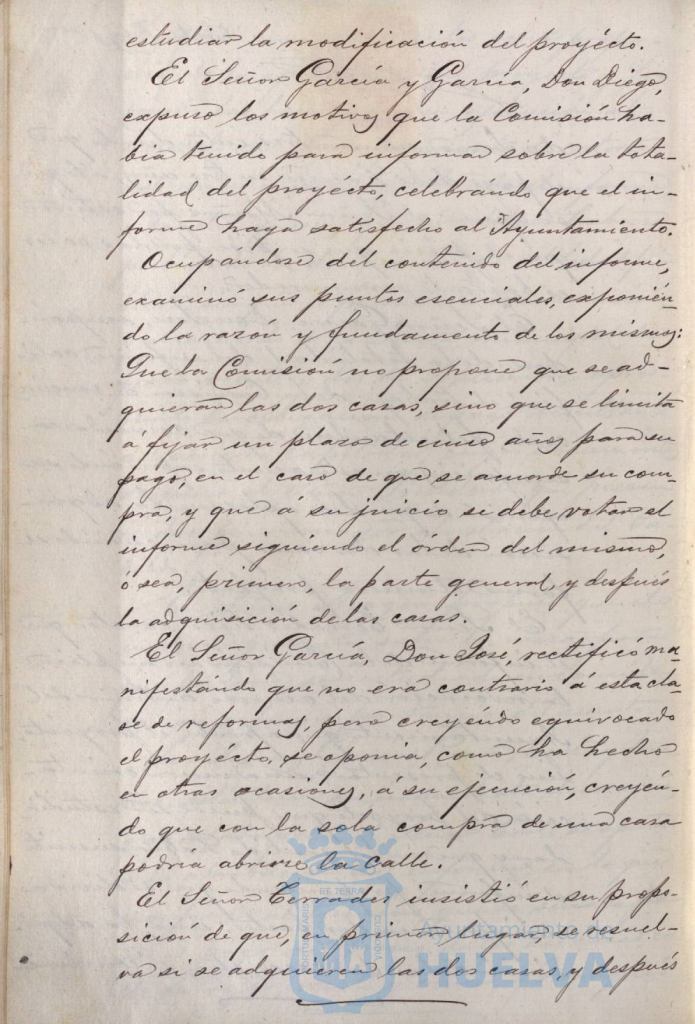 estudiar la modificación del proyécto.
El Señor García y García, Don Diego,
expuso los motivos que la Comisión ha-
bia tenido para informar sobre la tota-
lidad del proyécto, celebrándo que el in-
forme haya satisfecho al Ayuntamiento.
Ocupándose del contenido del informe,
examinó sus puntos esenciales, exponién-
do la razón y fundamento de los mismos:
Que la Comisión no propone que se ad-
quieran las dos casas, sino que se limita
á fijar un plazo de cinco años para su
pago, en el caso de que se acuerde su com-
pra, y que á su juicio se debe votar el
informe siguiendo el órden del mismo,
ó sea, primero, la parte general, y después
la adquisición de las casas.
El Señor García, Don José, rectificó ma-
nifestándo que no era contrario á esta cla-
se de reformas, pero creyéndo equivocado
el proyécto, se oponia, como ha hecho
en otras ocasiones, á su ejecución, creyén-
do que con la sola compra de una casa
podría abrirse la calle.
El Señor Terrades insistió en su propo-
sición de que, en primer lugar, se resuel-
va si se adquieren las dos casas, y después
Ayuntamiento de
HUELVA
PORTUS MARIS
ET TERRAE
CUSTODIA